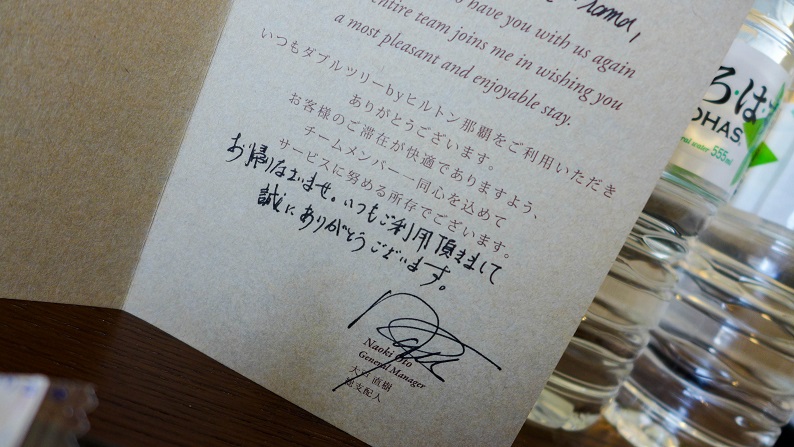 to have you with us again
entire team joins me in wishing you
a most pleasant and enjoyable stay.
いつもダブルツリーbyヒルトン那覇をご利用いただき
ありがとうございます。
お客様のご滞在が快適でありますよう、
チームメンバー一同心を込めて
サービスに努める所存でございます。
お帰りなさいませ。いつもご利用頂きまして
誠にありがとうございます。
Naoki
General Manager
直樹
総支配人
ろ・は
OHAS
water 555ml